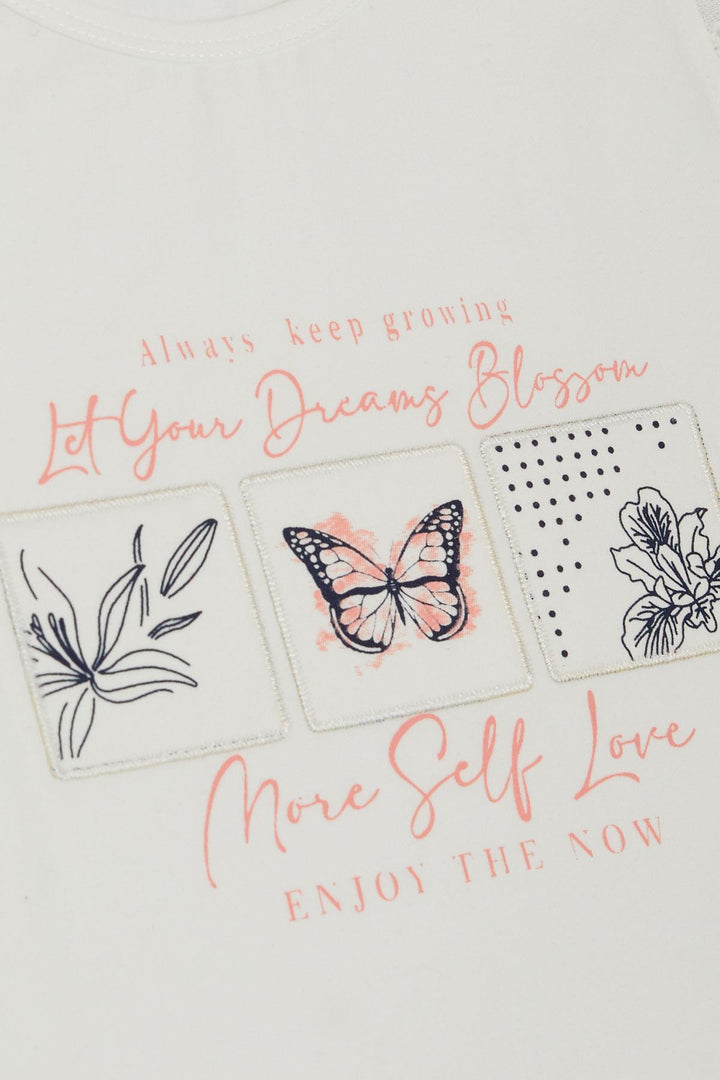 Always keep growing
Let Your Dreams Blossom
More Self Love
ENJOY THE NOW